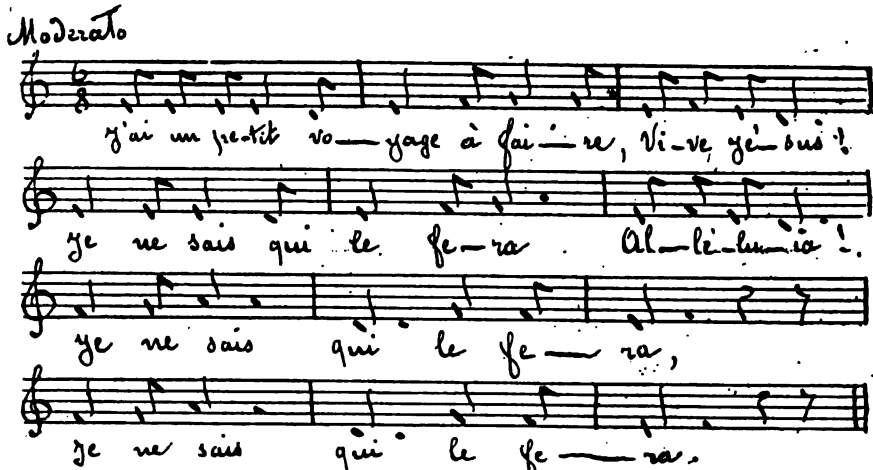 Moderato
6
8
J'ai un pe-tit vo—yage à fai-—re, Vi-ve Jé-sus!
Je ne sais qui le fe—ra. Al—lé-lu—ia!
Je ne sais qui le fe—ra,
Je ne sais qui le fe—ra.